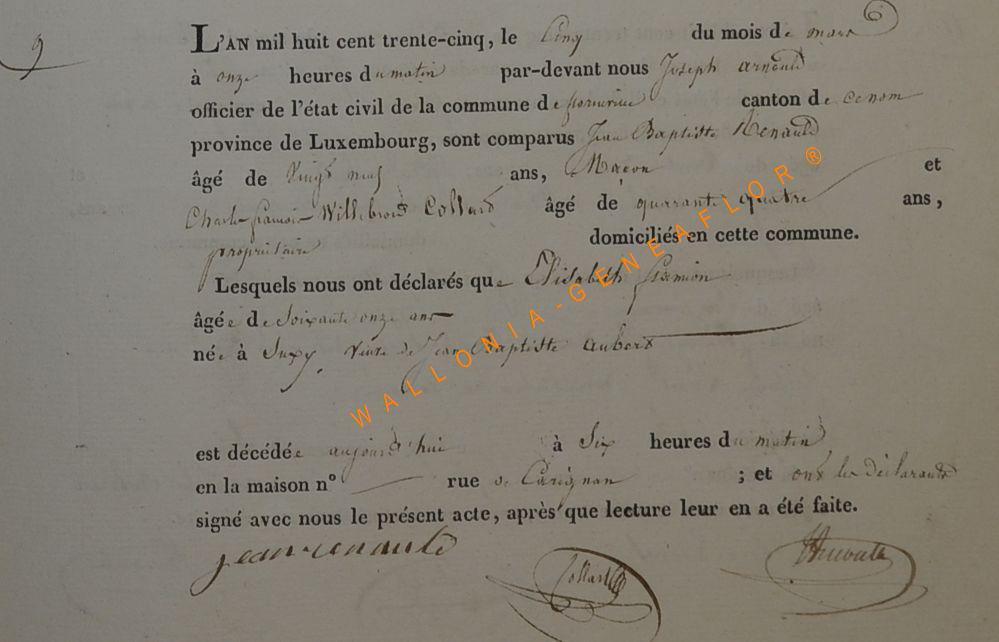 9
L'AN mil huit cent trente-cinq, le Cinq du mois de mars
à onze heures du matin par-devant nous Joseph arnould
officier de l'état civil de la commune de florenville canton de idem
province de Luxembourg, sont comparus Jean Baptiste Renauld
âgé de Vingt neuf ans, Maçon et
Charle françois Willebrord Collard âgé de quarante quatre ans,
propriétaire domiciliés en cette commune.
Lesquels nous ont déclarés que Elisabeth
âgée de Soixante onze ans
née à Suxy Veuve de Jean Baptiste aubert
est décédée aujourd'hui à Six heures du matin
en la maison n° rue de Carignan ; et ont les déclarants
signé avec nous le présent acte, après que lecture leur en a été faite.
jean renauld
Collard
WALLONIA-GENEAFLOR®